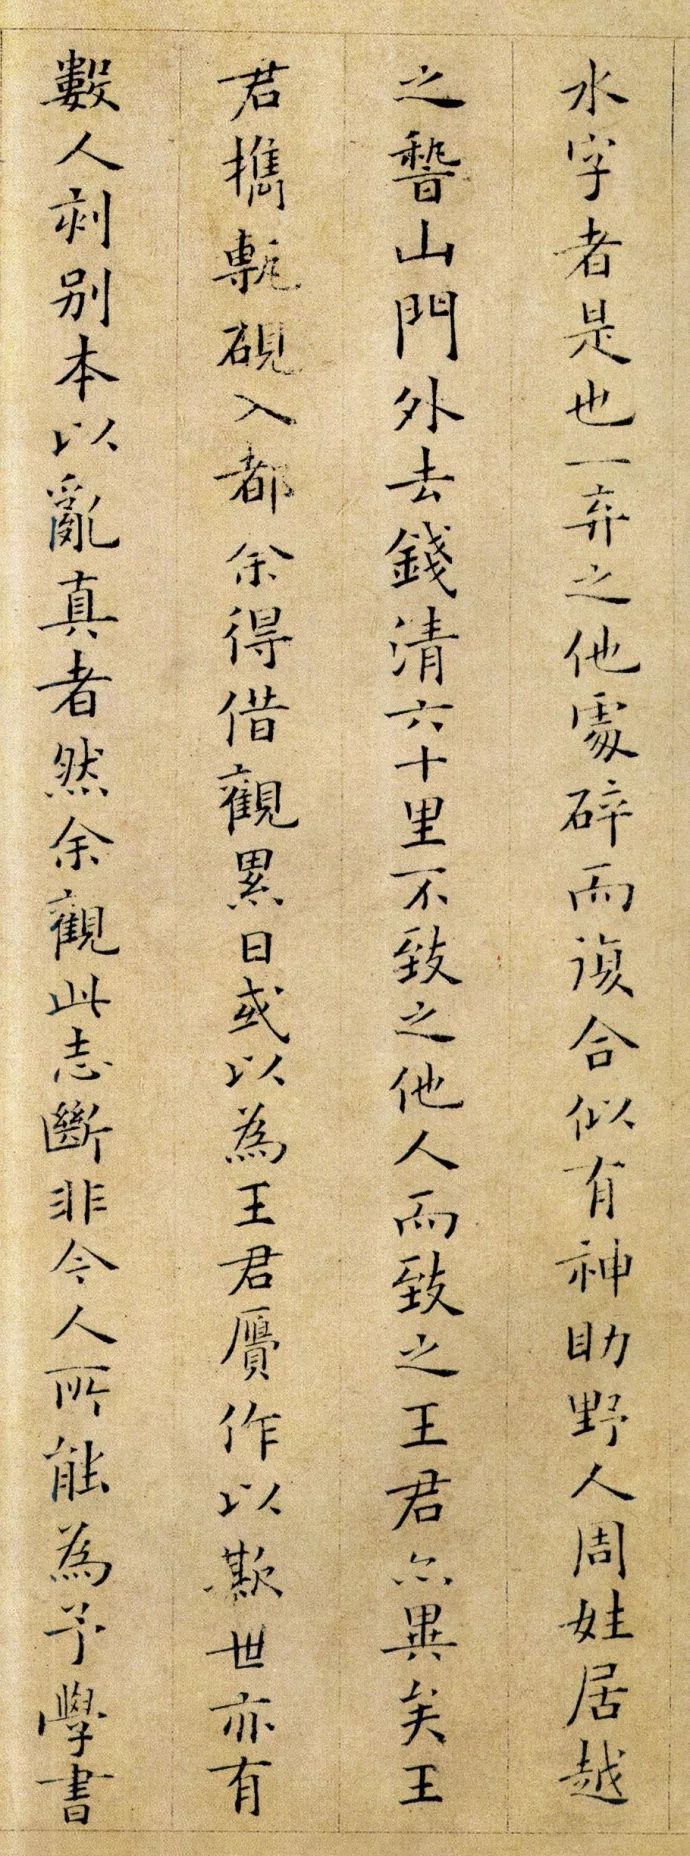 水字者是也一弃之他處碎而復合似有神助野人周姓居越
之䅲山門外去錢清六十里不致之他人而致之王君亦異矣王
君攜甎硯入都余得借觀累日或以為王君贋作以欺世亦有
數人刻别本以亂真者然余觀此志斷非今人所能為予學書